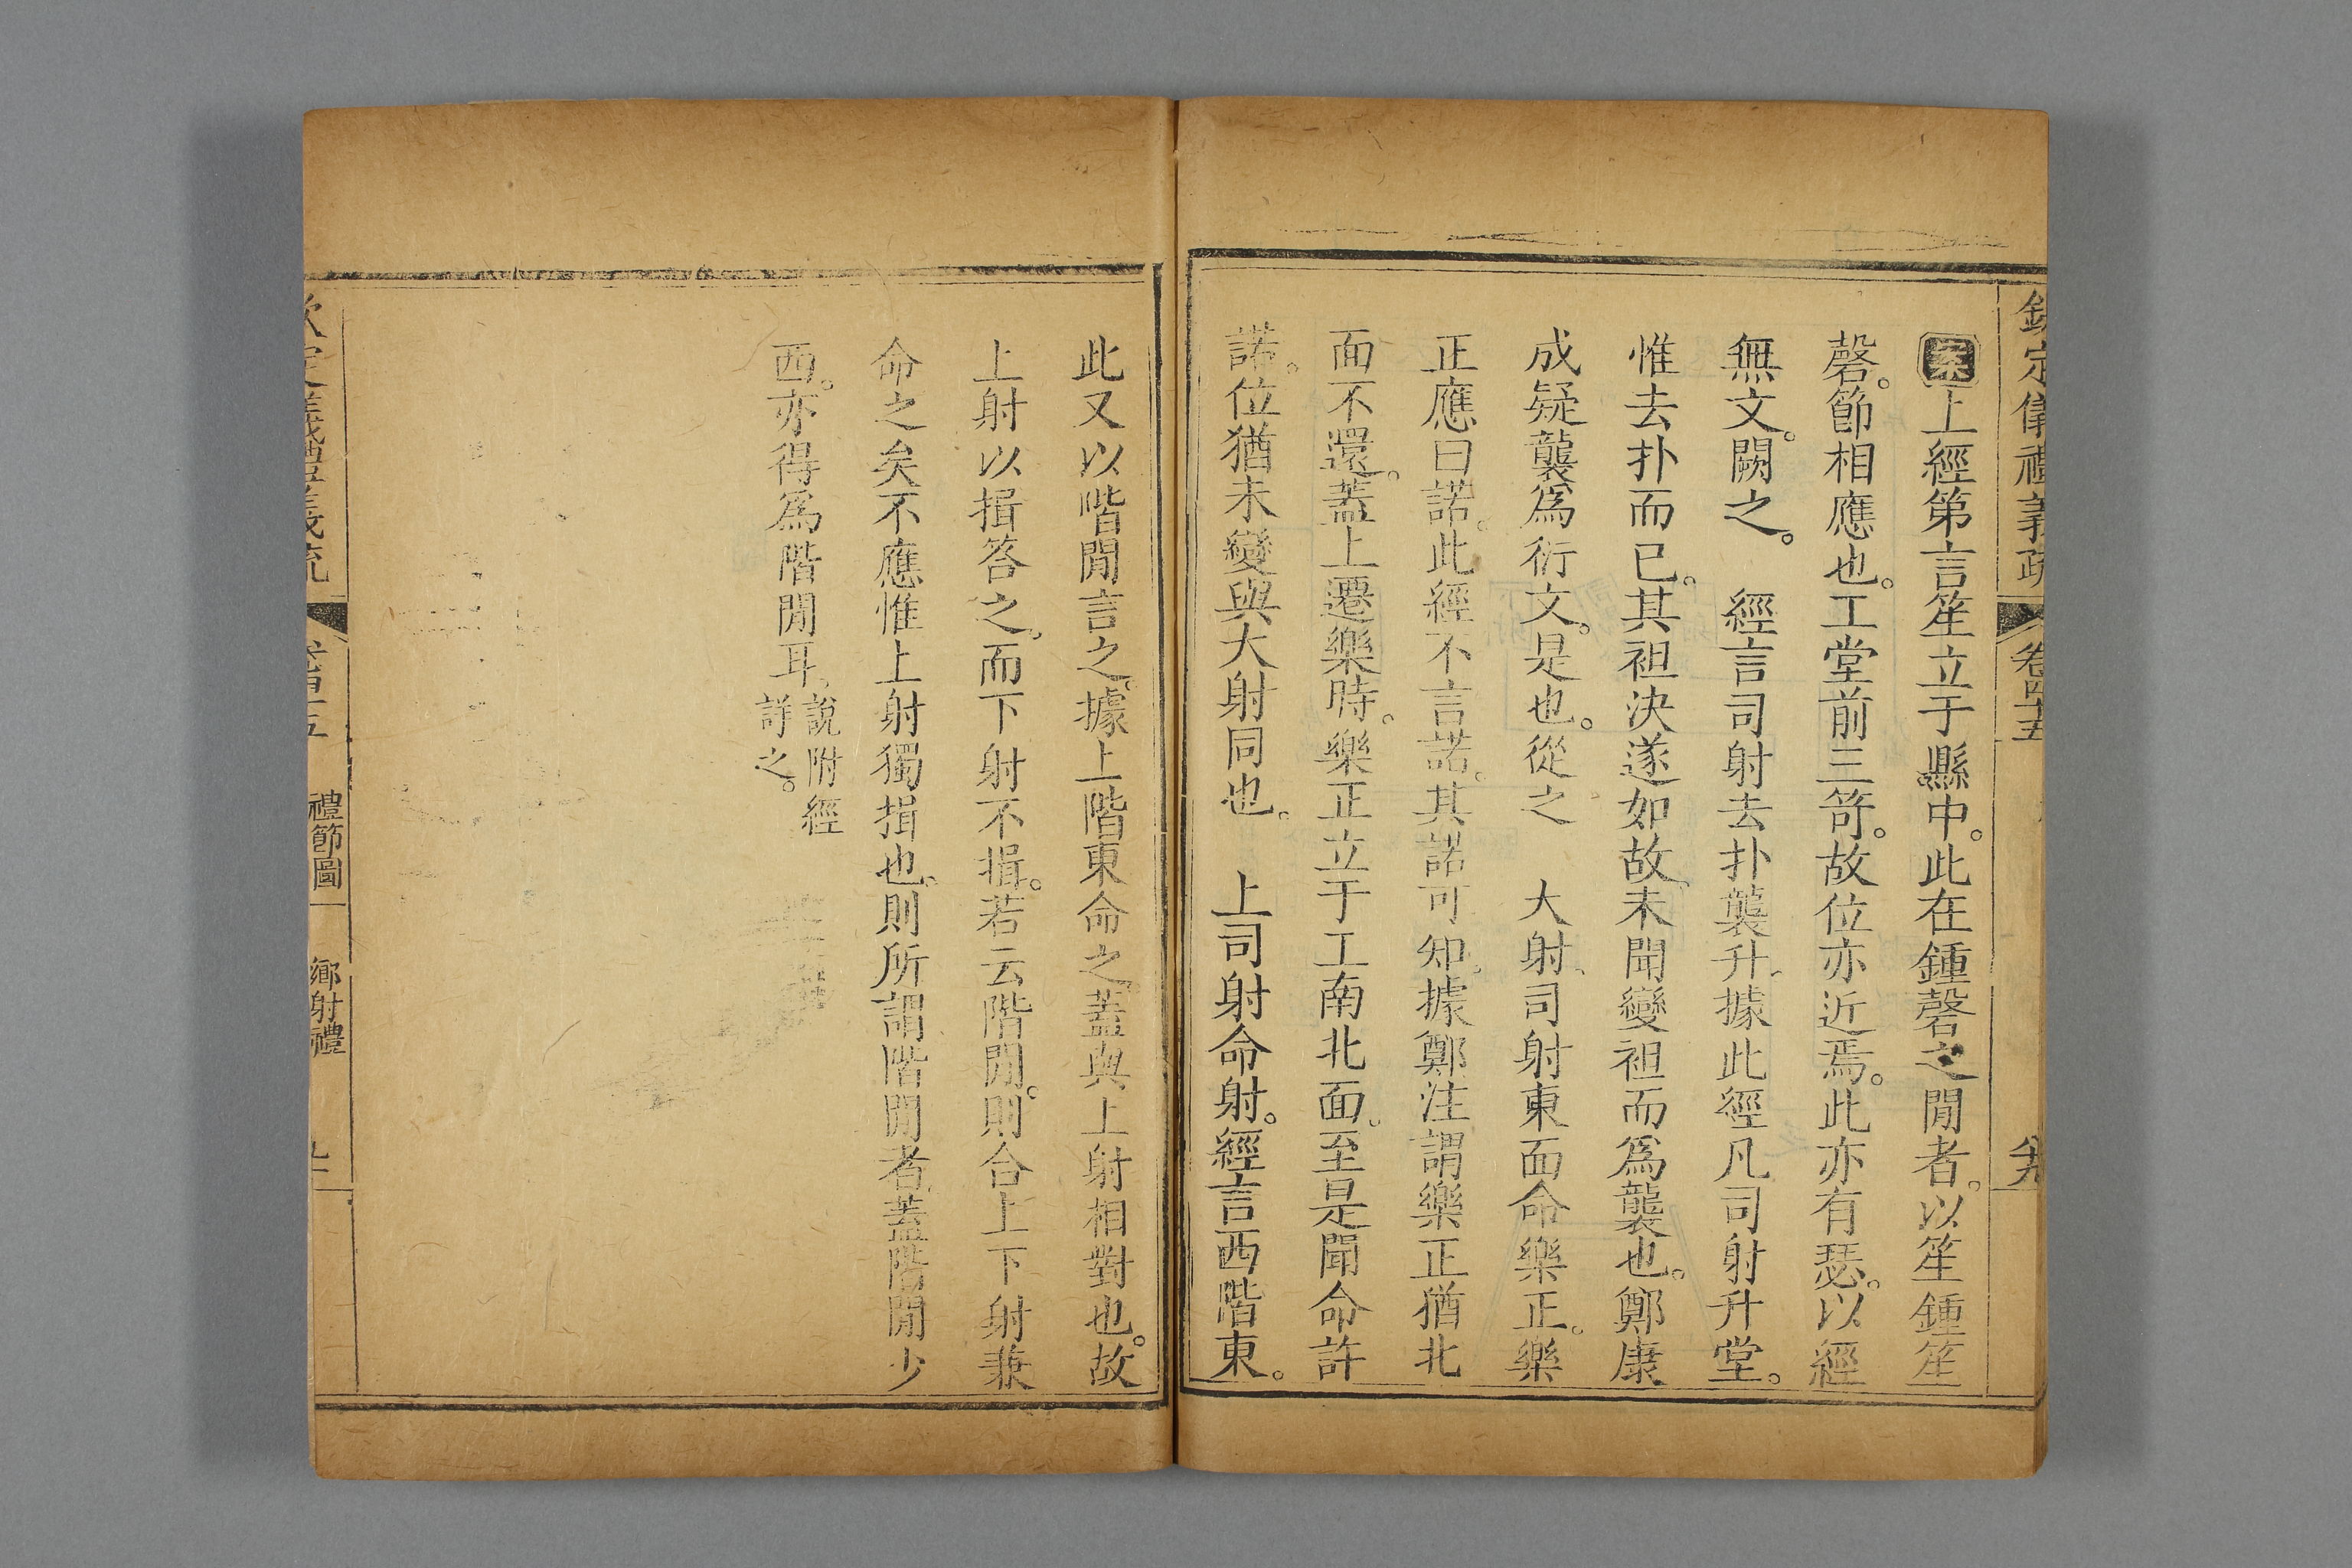 欽定儀禮義疏 卷四十五
案上經第言笙立于縣中。此在鍾磬之閒者。以笙鍾笙
磬。節相應也。工堂前三笴。故位亦近焉。此亦有瑟。以經
無文。闕之。 經言司射去扑襲升。據此經凡司射升堂。
惟去扑而已。其袒決遂如故。未聞變袒而爲襲也。鄭康
成疑襲爲衍文。是也。從之 大射、司射東面命樂正。樂
正應曰諾。此經不言諾。其諾可知。據鄭注謂樂正猶北
面不還。蓋上遷樂時。樂正立于工南北面。至是聞命許
諾。位猶未變與大射同也。 上司射命射。經言西階東。
此又以階閒言之。據上階東命之。蓋與上射相對也。故
上射以揖答之。而下射不揖。若云階閒。則合上下射兼
命之矣不應惟上射獨揖也。則所謂階閒者、蓋階閒少
西。亦得爲階閒耳、說附經
詳之。
欽定儀禮義疏
禮節圖一 鄉射禮